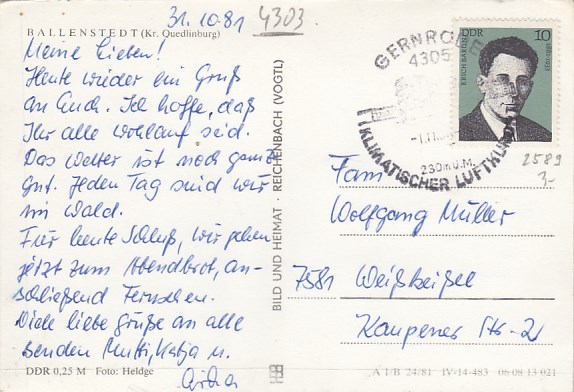 31.10.81
4303
BALLENSTEDT (Kr. Quedlinburg)
Meine Lieben!
Heute wieder ein Gruß
an Euch. Ich hoffe, daß
Ihr alle wohlauf seid.
Das Wetter ist noch ganz
gut. Jeden Tag sind wir
im Wald.
Für heute Schluß, wir gehen
jetzt zum Abendbrot, an-
schließend Fernsehen.
Viele liebe Grüße an alle
senden Mutti, Katja u.
DDR 0,25 M Foto: Heldge
BILD UND HEIMAT · REICHENBACH (VOGTL)
GERNRODE
4305
-1.11.
230m ü.M.
KLIMATISCHER LUFTKURORT
DDR 10
ERICH BARON
1881-1933
2589
3-
Fam
Wolfgang Müller
7581 Weißkeißel
Kaupener Str. 2
A 1/B 24/81 IV-14-483 06 08 13 021